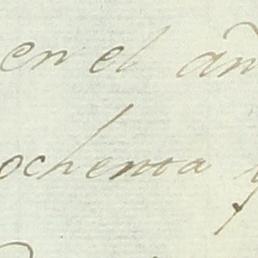 en el añ
ochenta y